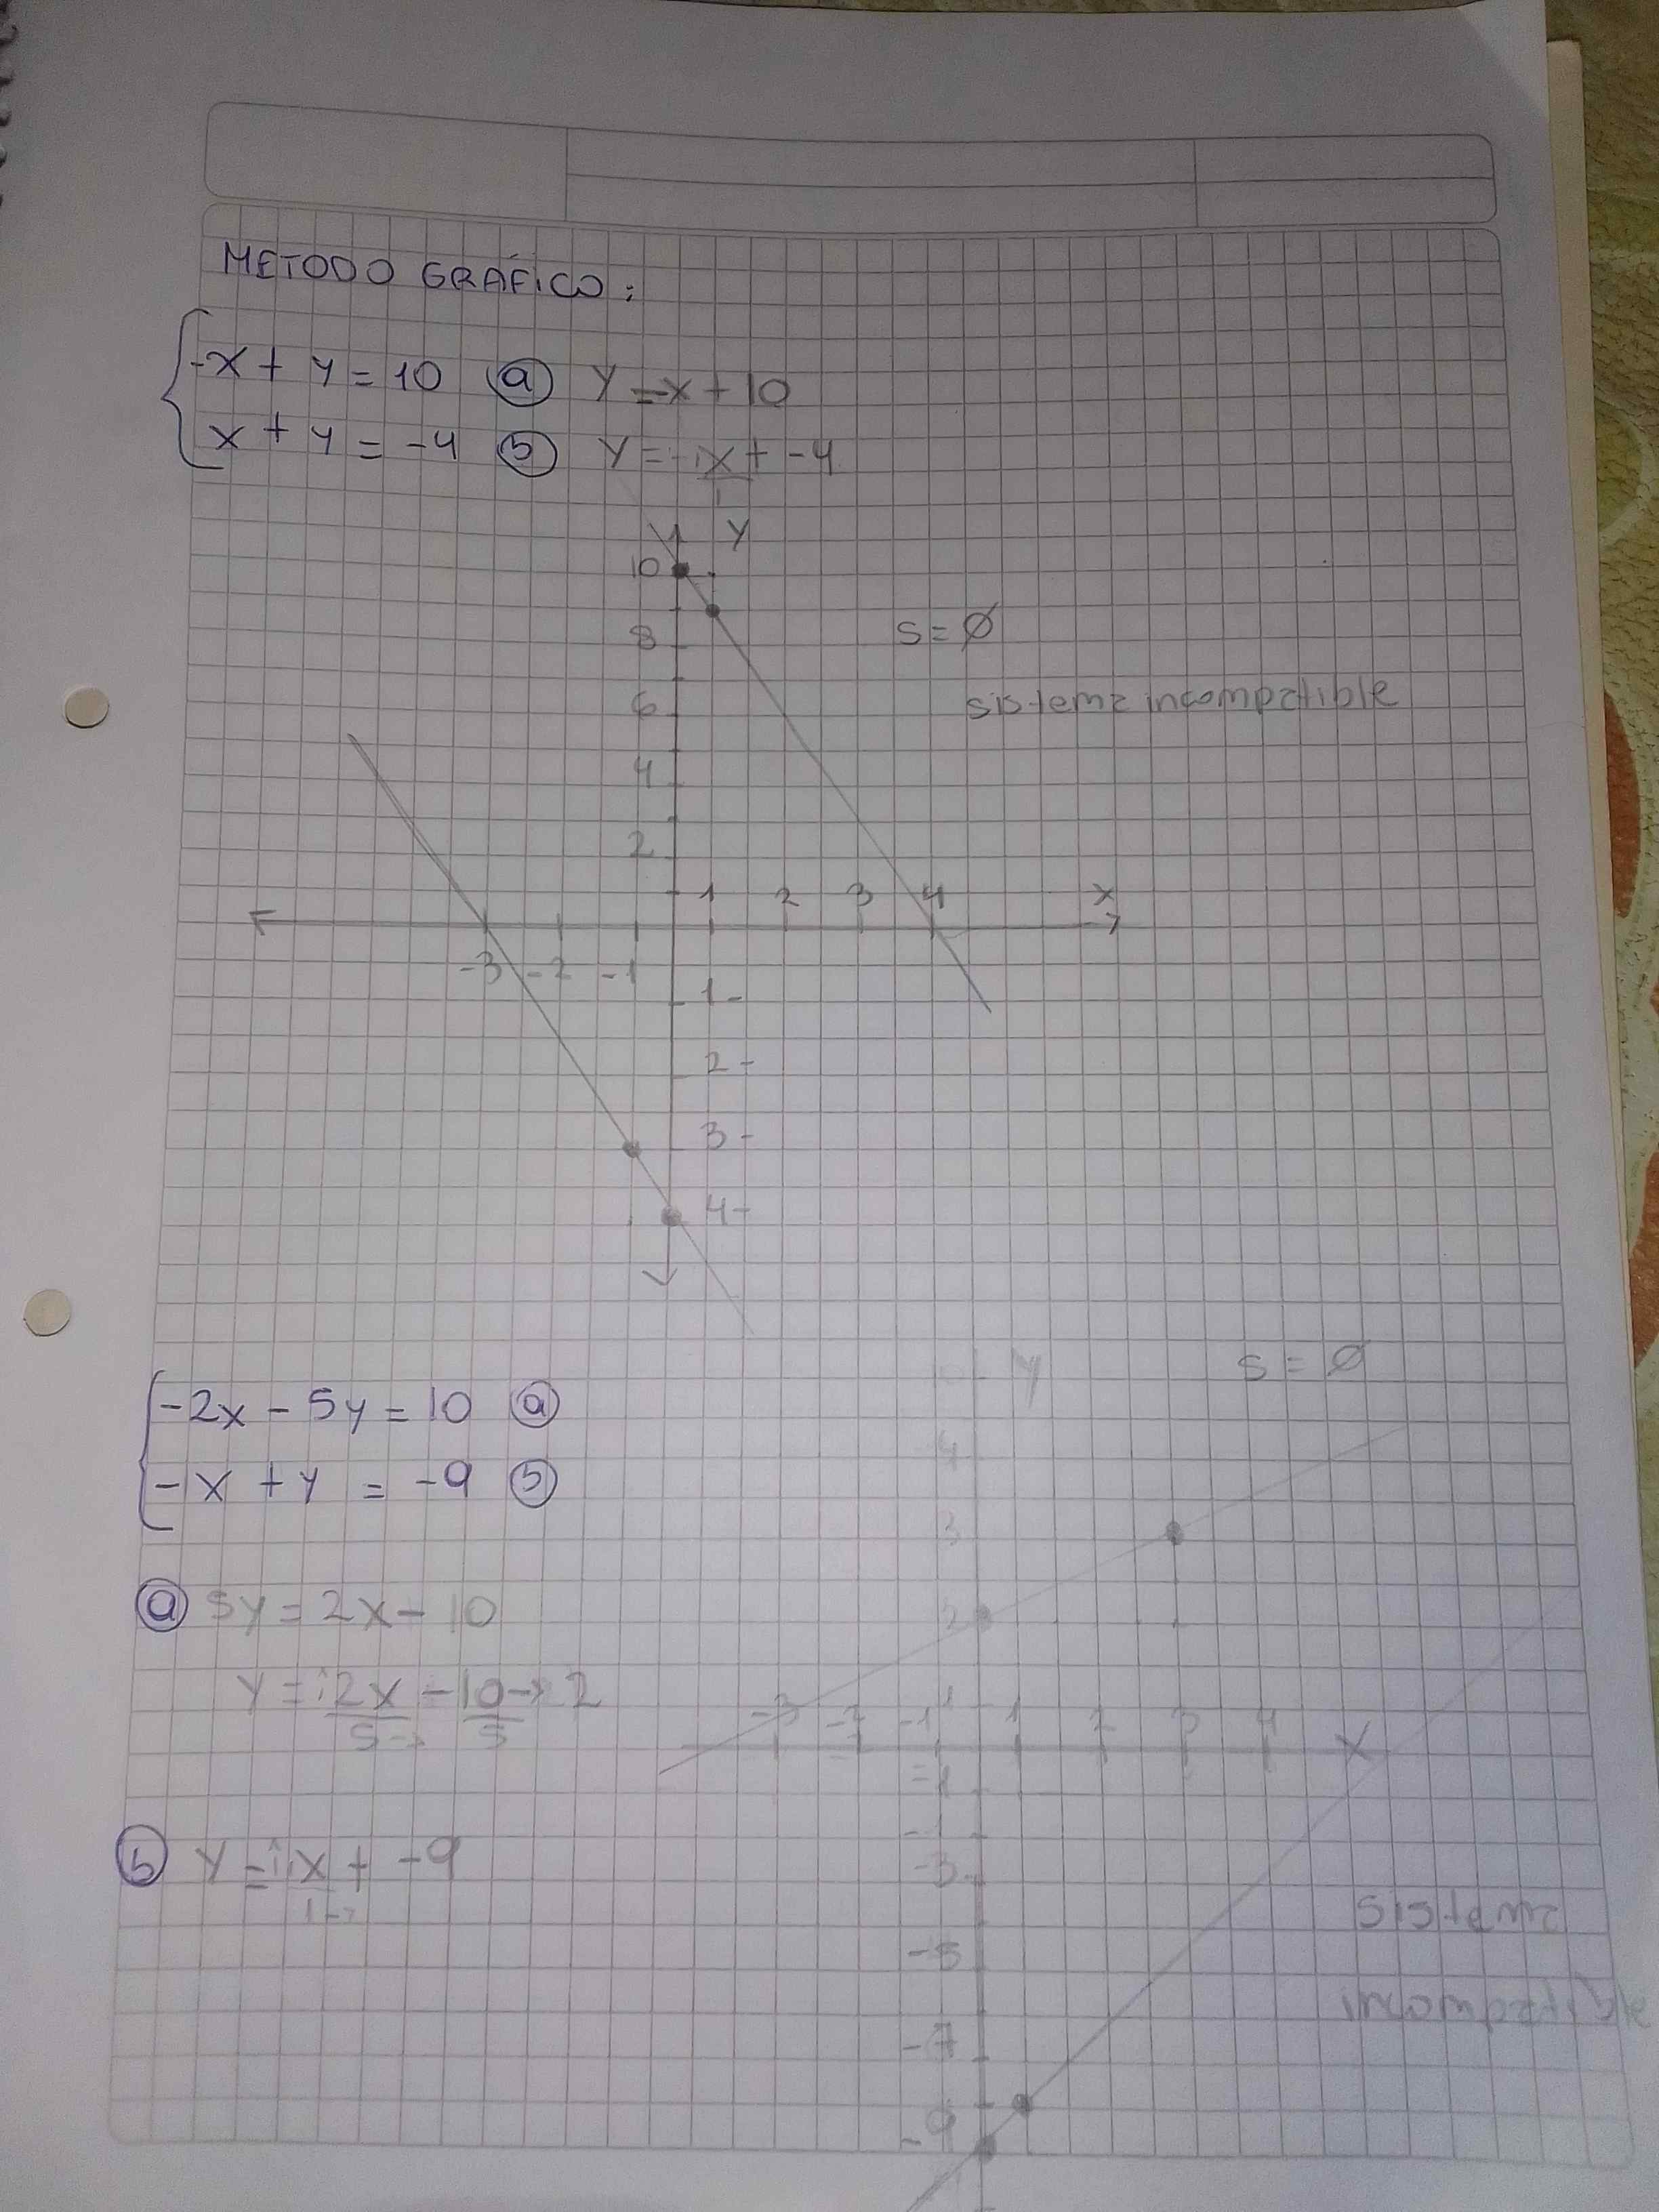 METODO GRÁFICO:
-x + y = 10 (a) y = -x + 10
x + y = -4 (b) y = -1x + -4
1
Y
10
8
S = Ø
6
sistema incompatible
4
2
1 2 3 4 X
-3 -2 -1
1-
2-
3-
4-
Y S = Ø
-2x - 5y = 10 (a)
-x + y = -9 (b)
4
3
(a) 5y = 2x - 10
2
y = 2x - 10 → 2
5 → 5
-3 -2 -1 1 1 2 3 4 X
-1
-1
(b) y = 1x + -9
1 →
-3
sistema
-5
incompatible
-7
-9